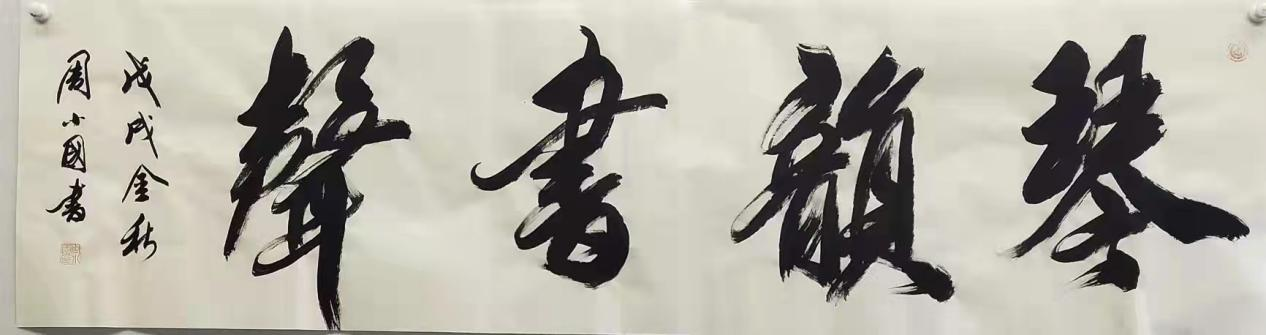 琴韻書聲
戊戌金秋
周小國書